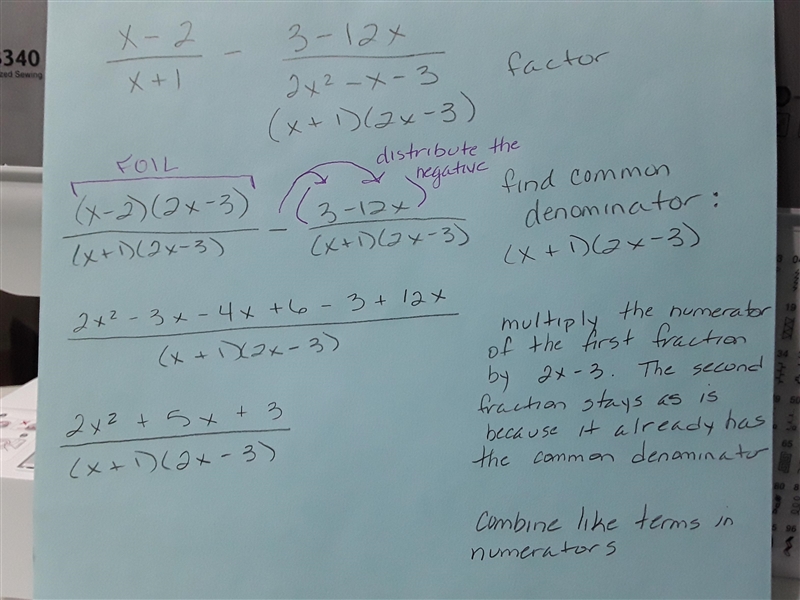 340
zed Sewing
x - 2 / x + 1 - 3 - 12x / 2x² - x - 3
factor
(x + 1)(2x - 3)
FOIL
distribute the
negative
(x-2)(2x-3) / (x+1)(2x-3) - (3-12x) / (x+1)(2x-3)
find common
denominator:
(x+1)(2x-3)
2x² - 3x - 4x + 6 - 3 + 12x / (x+1)(2x-3)
multiply the numerator
of the first fraction
by 2x-3. The second
fraction stays as is
because it already has
the common denominator
2x² + 5x + 3 / (x+1)(2x-3)
Combine like terms in
numerators